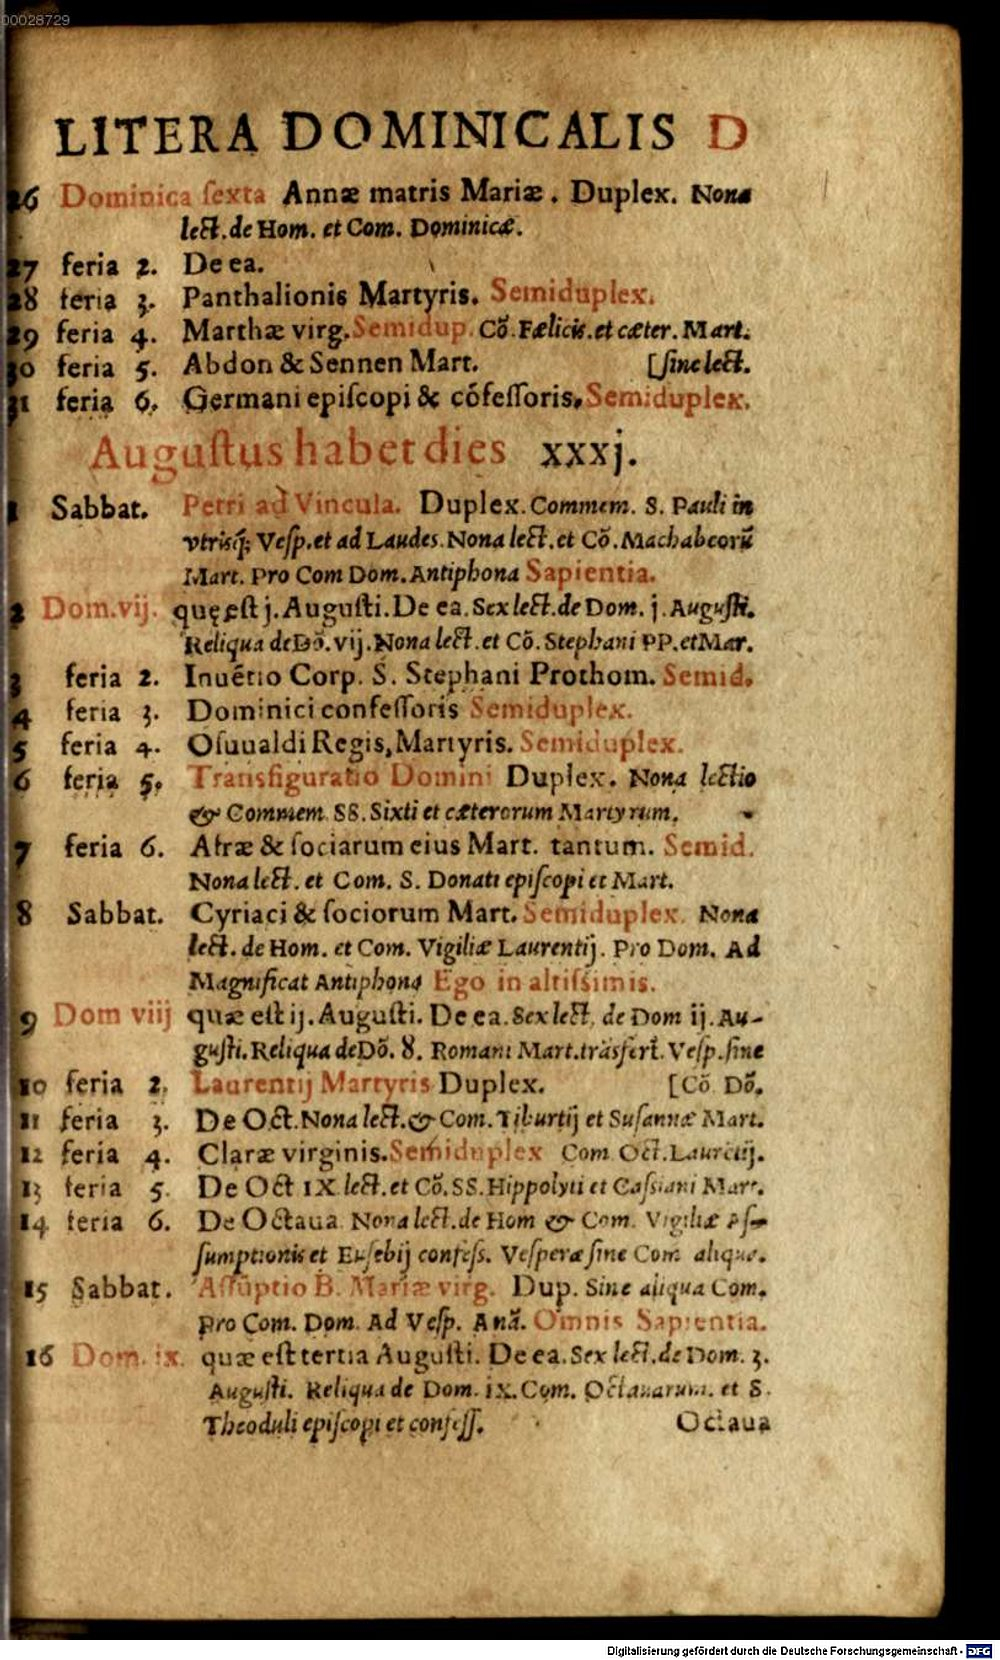 00028729
LITERA DOMINICALIS D
26 Dominica ſexta Annæ matris Mariæ. Duplex. Nona
lect. de Hom. et Com. Dominicæ.
27 feria 2. De ea.
28 feria 3. Panthalionis Martyris. Semiduplex.
29 feria 4. Marthæ virg. Semidup. Cō. Fælicis. et cæter. Mart.
30 feria 5. Abdon & Sennen Mart. [ſine lect.
31 feria 6. Germani epiſcopi & cōfeſſoris. Semiduplex.
Auguſtus habet dies xxxj.
1 Sabbat. Petri ad Vincula. Duplex. Commem. S. Pauli in
vtrisq; Veſp. et ad Laudes. Nona lect. et Cō. Machabeorū
Mart. Pro Com Dom. Antiphona Sapientia.
2 Dom. vij. quę eſt j. Auguſti. De ea. Sex lect. de Dom. j. Auguſti.
Reliqua de Dō. vij. Nona lect. et Cō. Stephani PP. et Mar.
3 feria 2. Inuētio Corp. S. Stephani Prothom. Semid.
4 feria 3. Dominici confeſſoris Semiduplex.
5 feria 4. Oſuualdi Regis, Martyris. Semiduplex.
6 feria 5. Transfiguratio Domini Duplex. Nona lectio
& Commem. SS. Sixti et cæterorum Martyrum.
7 feria 6. Afræ & ſociarum eius Mart. tantum. Semid.
Nona lect. et Com. S. Donati epiſcopi et Mart.
8 Sabbat. Cyriaci & ſociorum Mart. Semiduplex. Nona
lect. de Hom. et Com. Vigiliæ Laurentij. Pro Dom. Ad
Magnificat Antiphona Ego in altiſsimis.
9 Dom viij quæ eſt ij. Auguſti. De ea. Sex lect. de Dom ij. Au-
guſti. Reliqua de Dō. 8. Romani Mart. trāsfert. Veſp. ſine
10 feria 2. Laurentij Martyris Duplex. [Cō. Dō.
11 feria 3. De Oct. Nona lect. & Com. Tiburtij et Suſannæ Mart.
12 feria 4. Claræ virginis. Semiduplex Com. Oct. Laurētij.
13 feria 5. De Oct IX lect. et Cō. SS. Hippolyti et Caſsiani Mart.
14 feria 6. De Octaua Nona lect. de Hom & Com. Vigiliæ Aſ-
ſumptionis et Euſebij confeſs. Veſperæ ſine Com aliqua.
15 Sabbat. Aſſūptio B. Mariæ virg. Dup. Sine aliqua Com.
Pro Com. Dom. Ad Veſp. Anā. Omnis Sapientia.
16 Dom. ix. quæ eſt tertia Auguſti. De ea. Sex lect. de Dom. 3.
Auguſti. Reliqua de Dom. ix. Com. Octauarum. et S.
Theoduli epiſcopi et confeſſ. Octaua
Digitalisierung gefördert durch die Deutsche Forschungsgemeinschaft - DFG